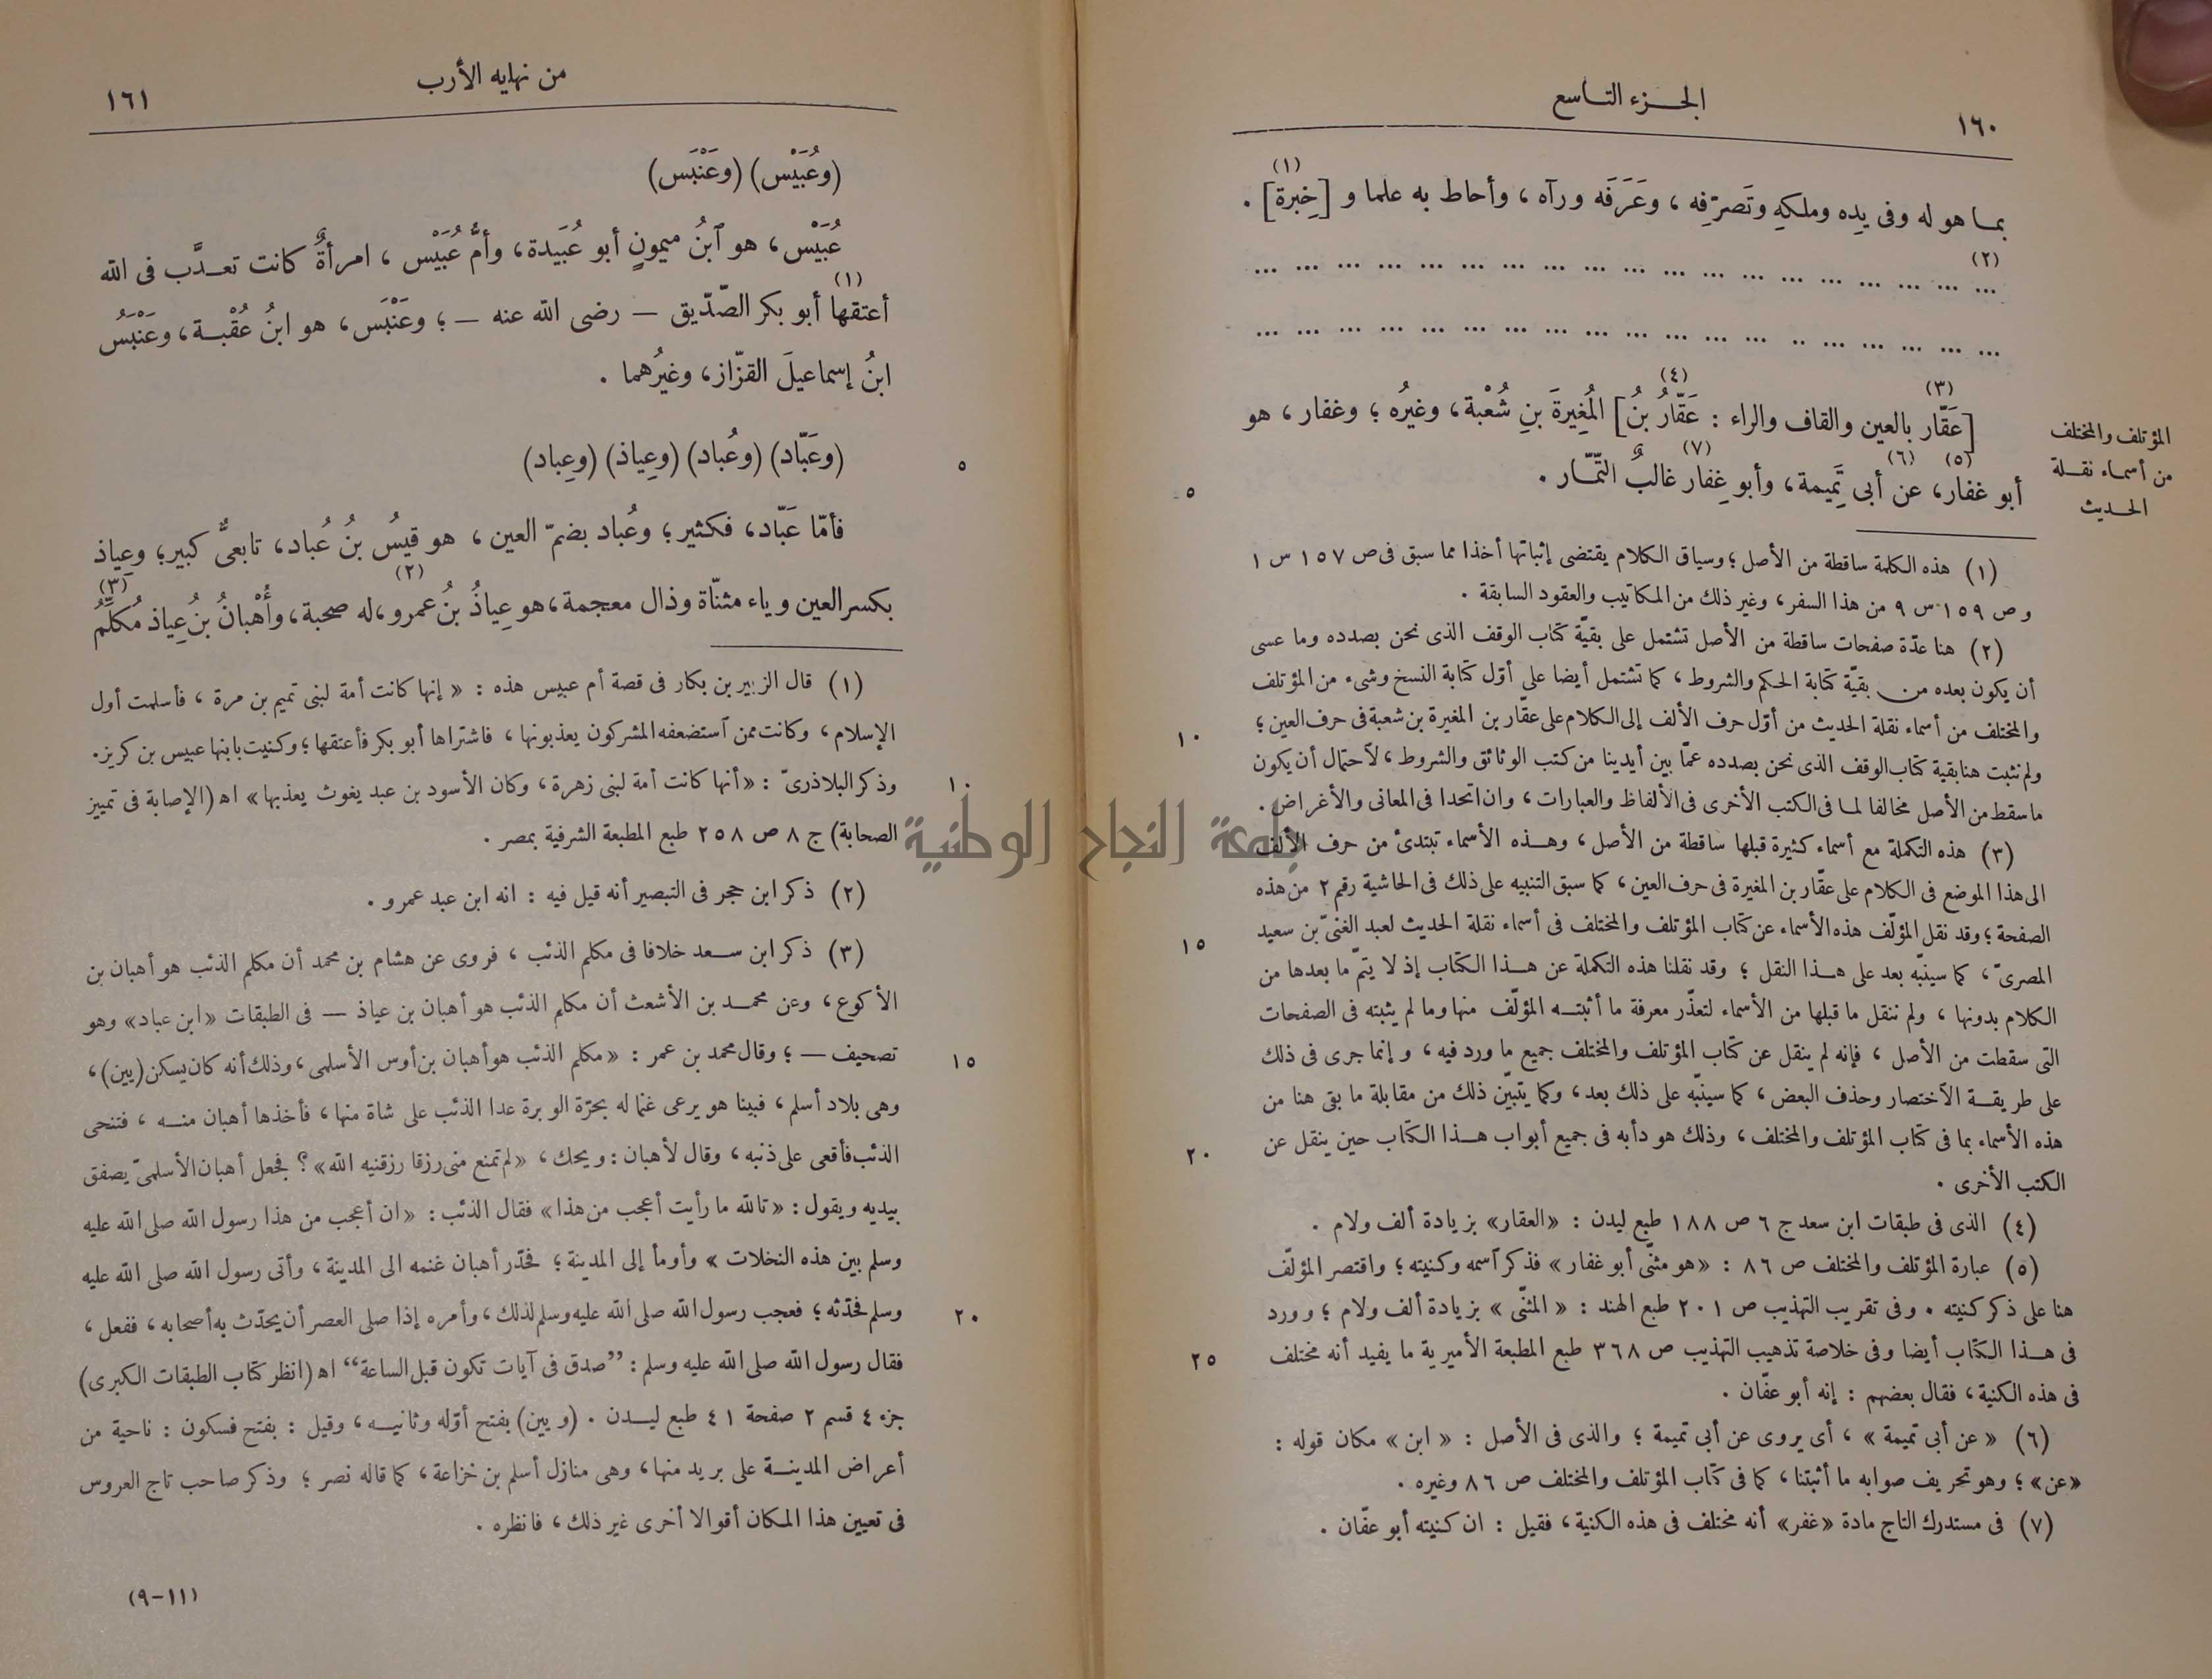 ١٦٠
الجـزء التـاسع
بمـا هو له وفى يِده وملكهِ وتَصرّفِه ، وعَرَفَه ورآه ، وأحاط به علما و [خِبرة](١) .
(٢) ... ... ... ... ... ... ... ... ... ... ... ... ... ... ... ... ... ...
... ... ... ... ... .. ... ... ... ... ... ... ... ... ... ... ... ... ...
المؤتلف والمختلف
من أسماء نقـلة
الحـديث
[عَقّار(٣) بالعين والقاف والراء : عَقّارُ(٤) بنُ] المُغِيرةَ بنِ شُعْبة ، وغيرُه ؛ وغفار ، هو
أبو غفار(٥)، عن(٦) أبى تَمِيمة، وأبو غِفار(٧) غالبٌ التّمّـار .
٥
(١) هذه الكلمة ساقطة من الأصل ؛ وسياق الكلام يقتضى إثباتها أخذا مما سبق فى ص ١٥٧ س ١
و ص ١٥٩ س ٩ من هذا السفر ، وغير ذلك من المكاتيب والعقود السابقة .
(٢) هنا عدّة صفحات ساقطة من الأصل تشتمل على بقيّة كتاب الوقف الذى نحن بصدده وما عسى
أن يكون بعده من بقيّة كتابة الحكم والشروط ، كما تشتمل أيضا على أوّل كتابة النسخ وشىء من المؤتلف
والمختلف من أسماء نقلة الحديث من أوّل حرف الألف إلى الكلام على عقار بن المغيرة بن شعبة فى حرف العين ؛
١٠
ولم نثبت هنا بقية كتاب الوقف الذى نحن بصدده عمّا بين أيدينا من كتب الوثائق والشروط ، لاحتمال أن يكون
ما سقط من الأصل مخالفا لمـا فى الكتب الأخرى فى الألفاظ والعبارات ، وان اتحدا فى المعانى والأغراض .
(٣) هذه التكملة مع أسماء كثيرة قبلها ساقطة من الأصل ، وهـذه الأسماء تبتدئ من حرف الألف
الى هذا الموضع فى الكلام على عقّار بن المغيرة فى حرف العين ، كما سبق التنبيه على ذلك فى الحاشية رقم ٢ من هذه
الصفحة ؛ وقد نقل المؤلّف هذه الأسماء عن كتاب المؤتلف والمختلف فى أسماء نقلة الحديث لعبد الغنىّ بن سعيد
١٥
المصرىّ ، كما سينبّه بعد على هـذا النقل ؛ وقد نقلنا هذه التكملة عن هـذا الكتاب إذ لا يتمّ ما بعدها من
الكلام بدونها ، ولم ننقل ما قبلها من الأسماء لتعذّر معرفة ما أثبتـه المؤلّف منها وما لم يثبته فى الصفحات
التى سقطت من الأصل ، فإنه لم ينقل عن كتاب المؤتلف والمختلف جميع ما ورد فيه ، و إنما جرى فى ذلك
على طريقـة الآختصار وحذف البعض ، كما سينبّه على ذلك بعد ، وكما يتبيّن ذلك من مقابلة ما بقى هنا من
هذه الأسماء بما فى كتاب المؤتلف والمختلف ، وذلك هو دأبه فى جميع أبواب هـذا الكتاب حين ينقل عن
٢٠
الكتب الأخرى .
(٤) الذى فى طبقات ابن سعد ج ٦ ص ١٨٨ طبع ليدن : «العقار» بزيادة ألف ولام .
(٥) عبارة المؤتلف والمختلف ص ٨٦ : «هو مثنّى أبو غفار» فذكر آسمه وكنيته ؛ واقتصر المؤلّف
هنا على ذكر كنيته . وفى تقريب التهذيب ص ٢٠١ طبع الهند : «المثنّى» بزيادة ألف ولام ؛ وورد
فى هـذا الكتاب أيضا وفى خلاصة تذهيب التهذيب ص ٣٦٨ طبع المطبعة الأميرية ما يفيد أنه مختلف
٢٥
فى هذه الكنية ، فقال بعضهم : إنه أبو عفّان .
(٦) «عن أبى تميمة» ، أى يروى عن أبى تميمة ؛ والذى فى الأصل : «ابن» مكان قوله :
«عن» ؛ وهو تحريف صوابه ما أثبتنا ، كما فى كتاب المؤتلف والمختلف ص ٨٦ وغيره .
(٧) فى مستدرك التاج مادة «غفر» أنه مختلف فى هذه الكنية ، فقيل : ان كنيته أبو عفّان .
من نهايه الأرب
١٦١
(وعُبَيْس) (وعَنْبَس)
عُبَيْس ، هو آبنُ ميمونٍ أبو عُبَيدة ، وأمُّ عُبَيْس ، امرأةٌ كانت تعـذَّب فى الله
أعتقها(١) أبو بكر الصّدّيق — رضى الله عنه — ؛ وعَنْبَس ، هو ابنُ عُقْبـة ، وعَنْبَسُ
ابنُ إسماعيلَ القزّاز ، وغيرُهما .
(وعَبّاد) (وعُباد) (وعِياذ) (وعِباد)
٥
فأمّا عَبّاد ، فكثير ؛ وعُباد بضمّ العين ، هو قيسُ بنُ عُباد ، تابعىٌّ كبير ؛ وعِياذ
بكسر العين و ياء مثنّاة وذال معجمة ، هو عِياذُ بنُ عمرو(٢) ، له صحبة ، وأُهْبانُ بنُ عِياذ مُكلِّمُ(٣)
(١) قال الزبير بن بكار فى قصة أم عبيس هذه : «إنها كانت أمة لبنى تميم بن مرة ، فأسلمت أول
الإسلام ، وكانت ممن آستضعفه المشركون يعذبونها ، فاشتراها أبو بكر فأعتقها ؛ وكنيت بابنها عبيس بن كريز .
وذكر البلاذرىّ : «أنها كانت أمة لبنى زهرة ، وكان الأسود بن عبد يغوث يعذبها» اه (الإصابة فى تمييز
١٠
الصحابة) ج ٨ ص ٢٥٨ طبع المطبعة الشرفية بمصر .
(٢) ذكر ابن حجر فى التبصير أنه قيل فيه : انه ابن عبد عمرو .
(٣) ذكر ابن سـعد خلافا فى مكلم الذئب ، فروى عن هشام بن محمد أن مكلم الذئب هو أهبان بن
الأكوع ، وعن محمـد بن الأشعث أن مكلم الذئب هو أهبان بن عياذ — فى الطبقات «ابن عباد» وهو
تصحيف — ؛ وقال محمد بن عمر : «مكلم الذئب هو أهبان بن أوس الأسلمى ، وذلك أنه كان يسكن (يين) ،
١٥
وهى بلاد أسلم ، فبينا هو يرعى غنما له بحرّة الوبرة عدا الذئب على شاة منها ، فأخذها أهبان منـه ، فتنحى
الذئب فأقعى على ذنبه ، وقال لأهبان : ويحك ، «لم تمنع منى رزقا رزقنيه الله» ؟ فجعل أهبان الأسلمىّ يصفق
بيديه ويقول : «تالله ما رأيت أعجب من هذا» فقال الذئب : «ان أعجب من هذا رسول الله صلى الله عليه
وسلم بين هذه النخلات» وأومأ إلى المدينة ؛ فحدّر أهبان غنمه الى المدينة ، وأتى رسول الله صلى الله عليه
وسلم فحدّثه ؛ فعجب رسول الله صلى الله عليه وسلم لذلك ، وأمره إذا صلى العصر أن يحدّث به أصحابه ، ففعل ،
٢٠
فقال رسول الله صلى الله عليه وسلم : ”صدق فى آيات تكون قبل الساعة“ اه (انظر كتاب الطبقات الكبرى)
جزء ٤ قسم ٢ صفحة ٤١ طبع ليـدن . (ويين) بفتح أوّله وثانيـه ، وقيل : بفتح فسكون : ناحية من
أعراض المدينـة على بريد منها ، وهى منازل أسلم بن خزاعة ، كما قاله نصر ؛ وذكر صاحب تاج العروس
فى تعيين هذا المكان أقوالا أخرى غير ذلك ، فانظره .
(٩-١١)
جامعة النجاح الوطنية